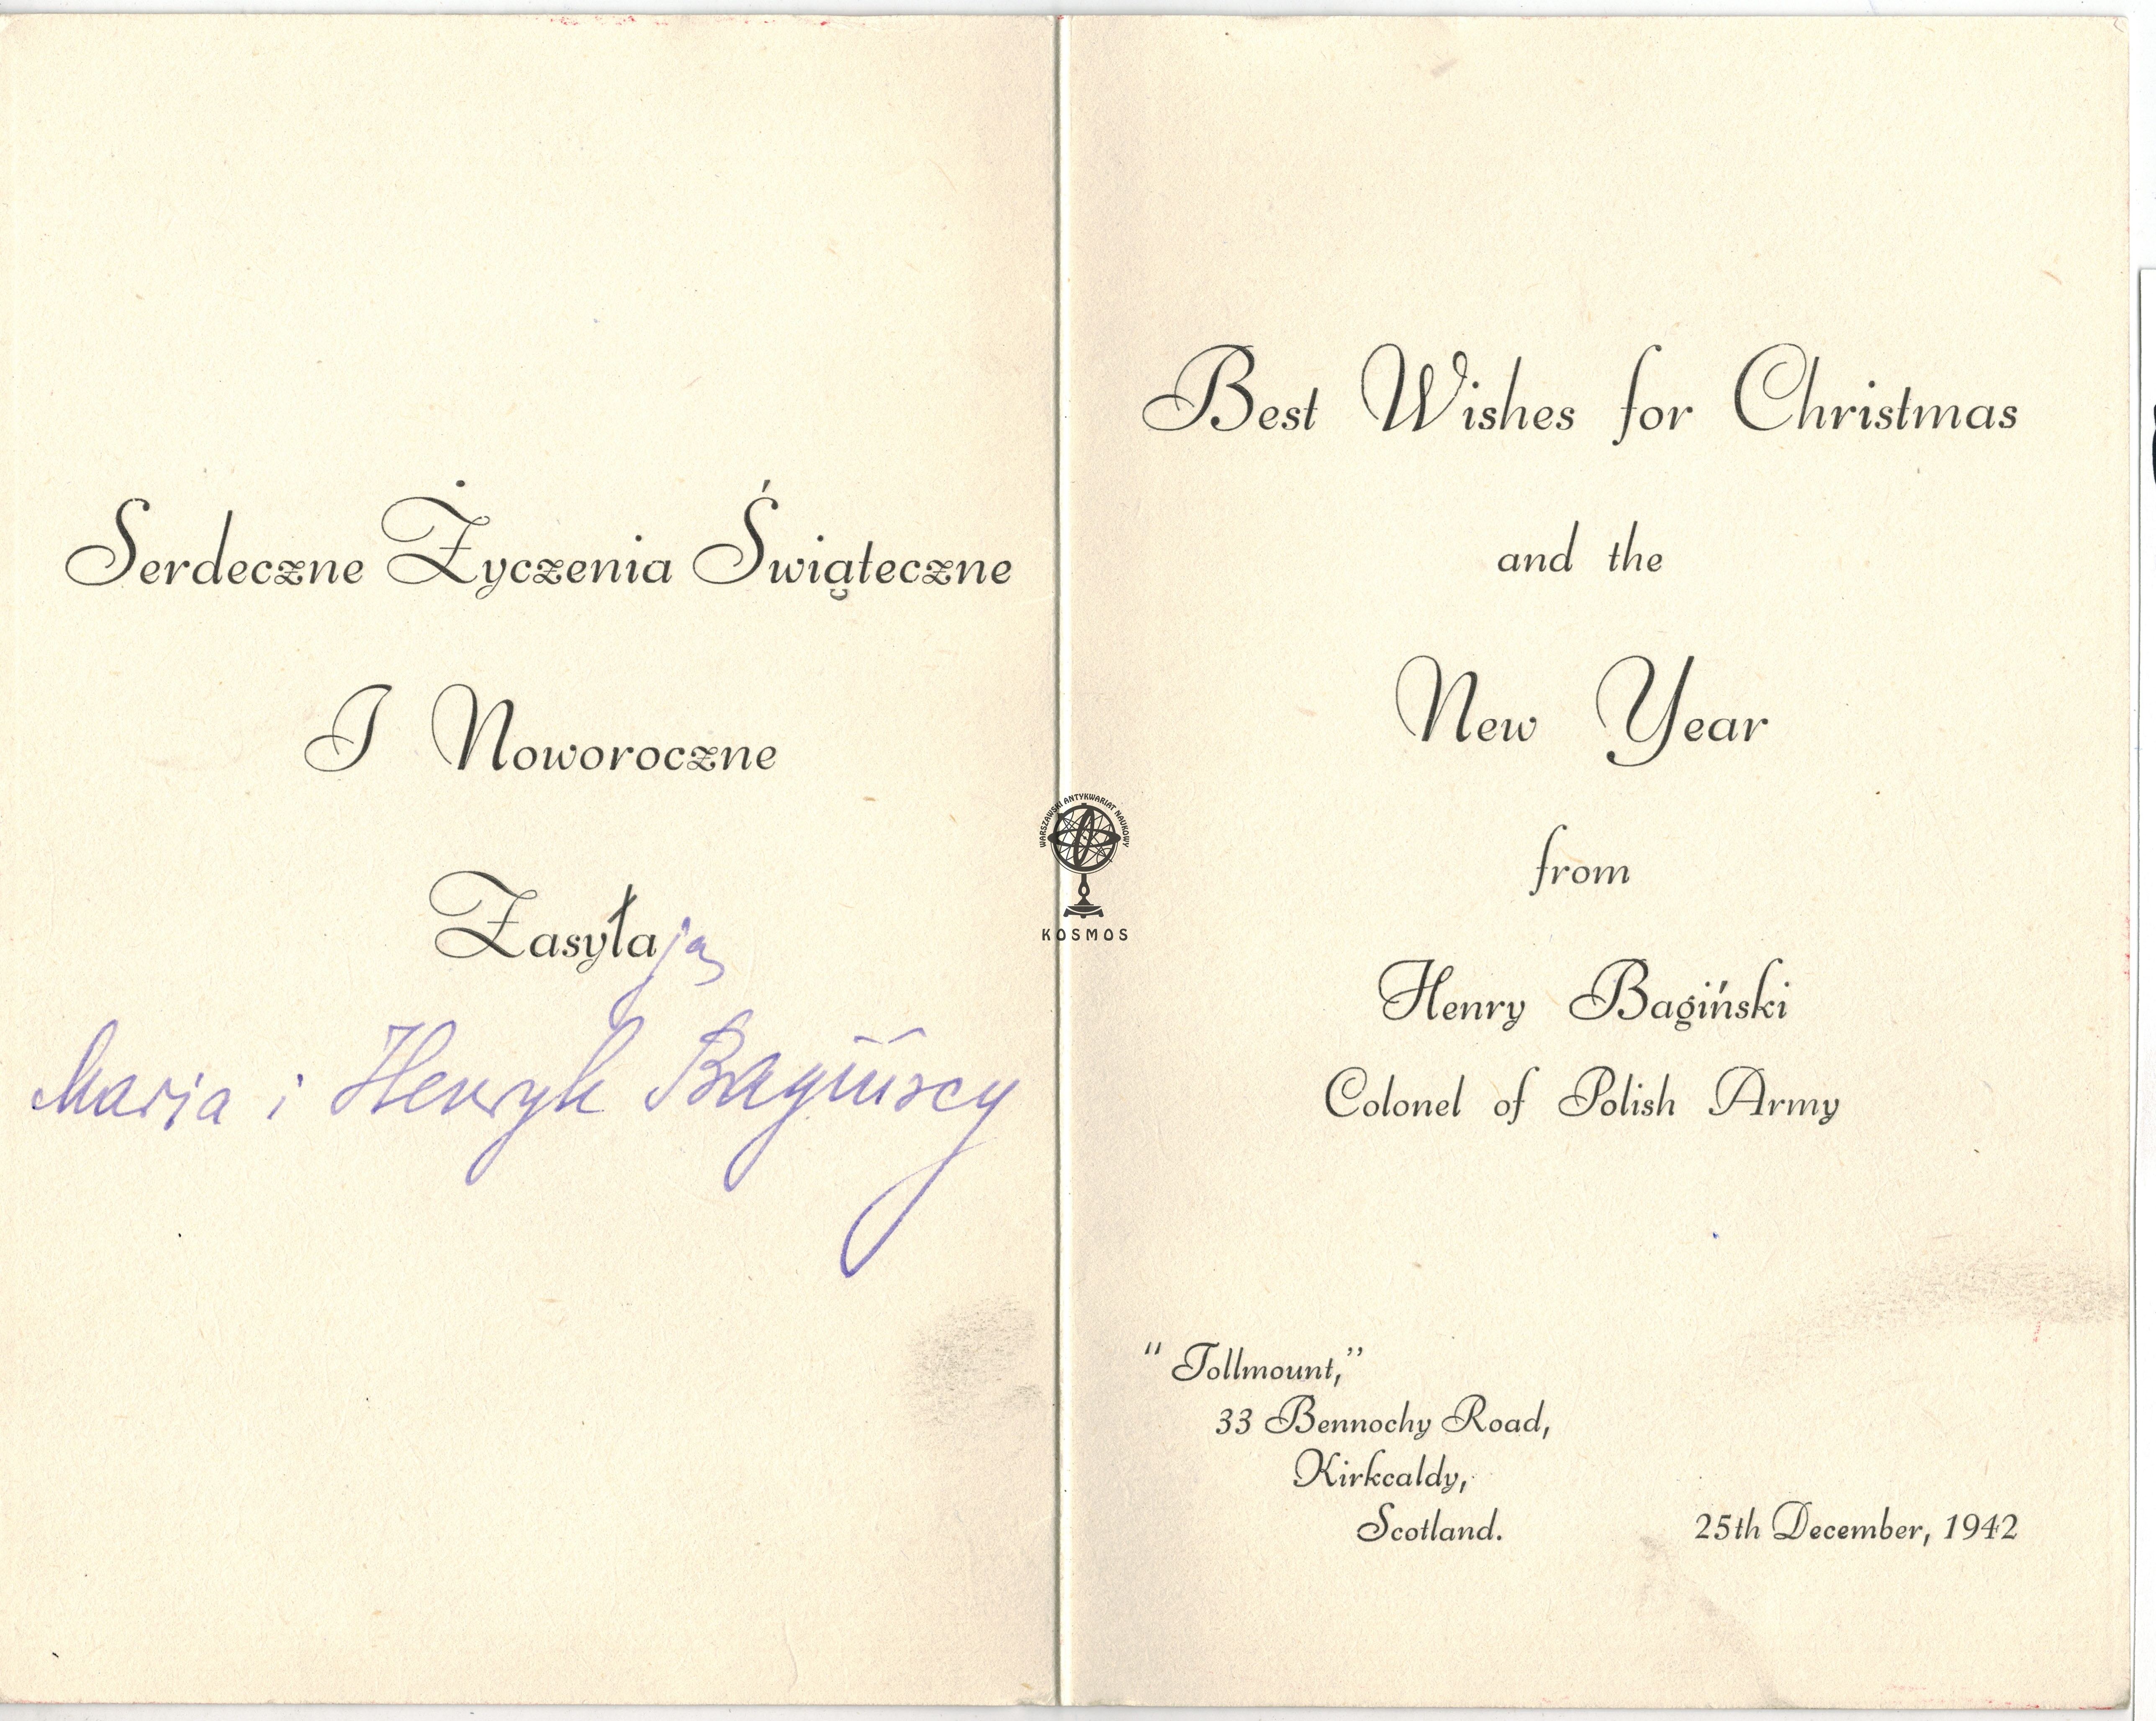 Serdeczne Życzenia Świąteczne
I Noworoczne
Zasyłają
Maria i Henryk Bagińscy
Best Wishes for Christmas
and the
New Year
from
Henry Bagiński
Colonel of Polish Army
"Tollmount,"
33 Bennochy Road,
Kirkcaldy,
Scotland.
25th December, 1942
WARSZAWSKI ANTYKWARIAT NAUKOWY
KOSMOS